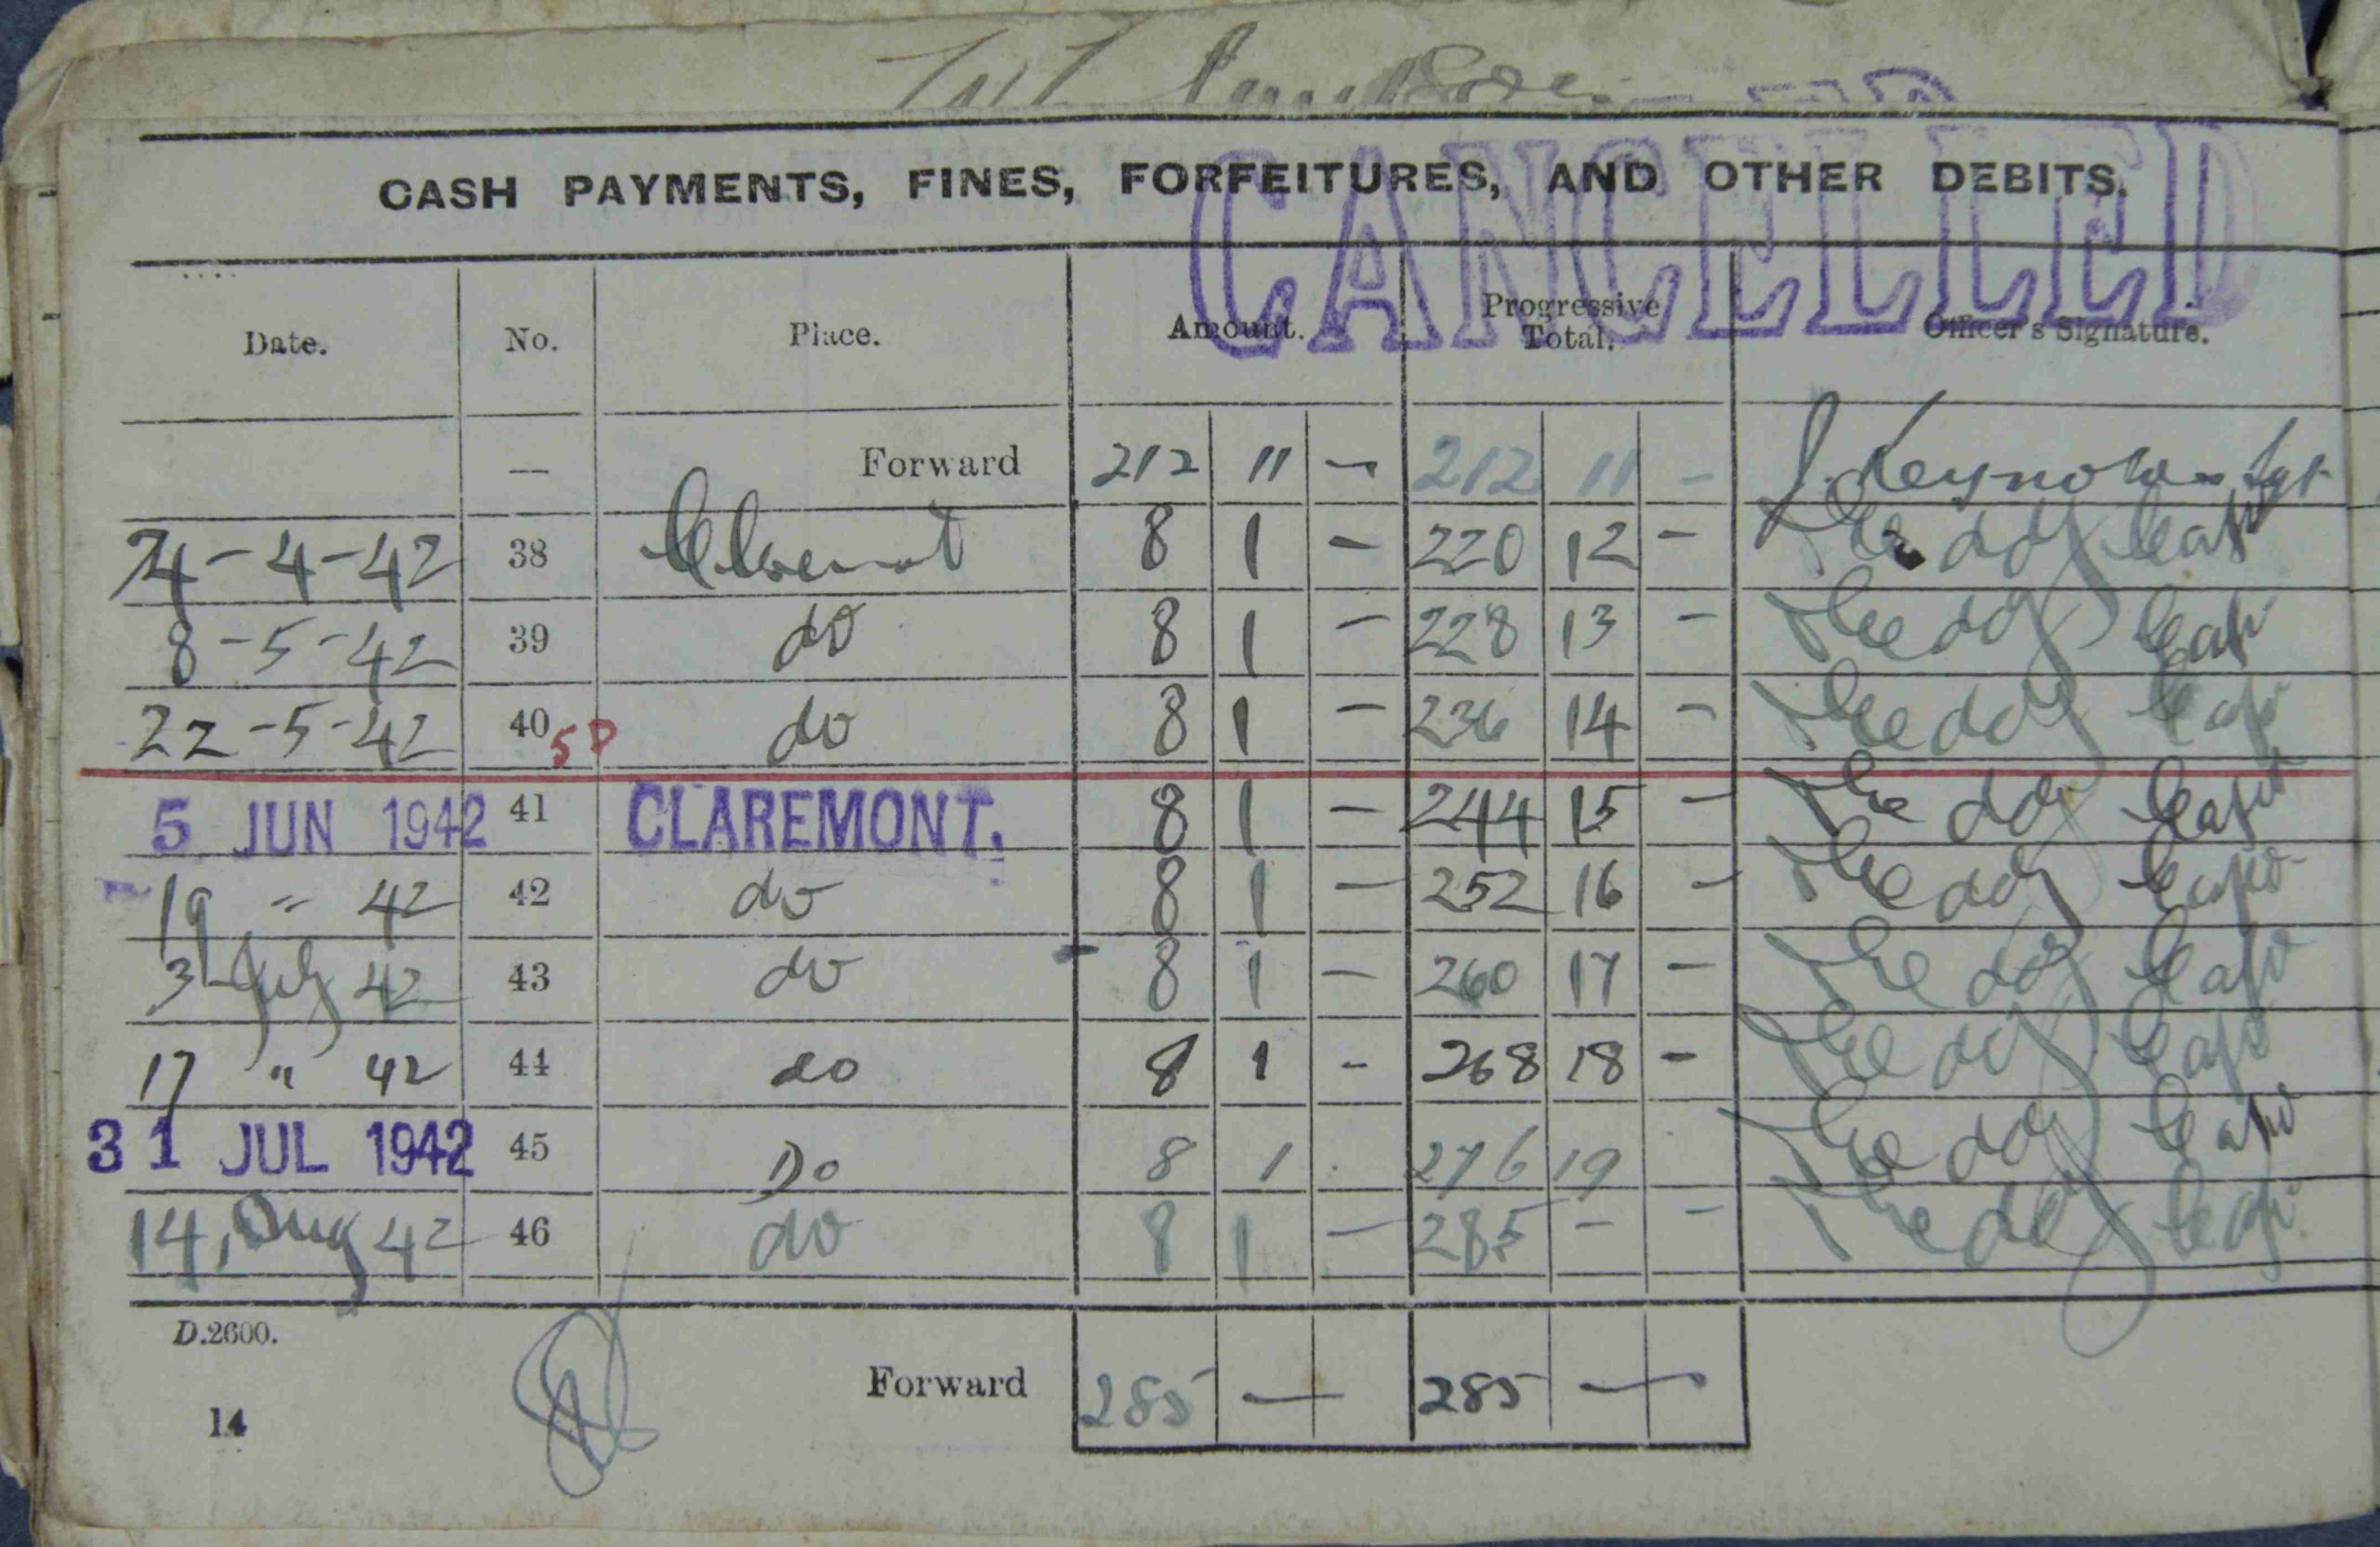 CANCELLED
CASH PAYMENTS, FINES, FORFEITURES, AND OTHER DEBITS.
Date. No. Place. Amount. Progressive Total. Officer's Signature.
— Forward 212 11 - 212 11 - J. Reynolds Sgt
24-4-42 38 8 1 - 220 12 - Capt
8-5-42 39 do 8 1 - 228 13 - Capt
22-5-42 40 5D do 8 1 - 236 14 - Capt
5 JUN 1942 41 CLAREMONT. 8 1 - 244 15 - Capt
19 " 42 42 do 8 1 - 252 16 - Capt
3 July 42 43 do 8 1 - 260 17 - Capt
17 " 42 44 do 8 1 - 268 18 - Capt
31 JUL 1942 45 Do 8 1 . 276 19 Capt
14, Aug 42 46 do 8 1 - 285 - - Capt
D.2600.
Forward 285 — 285 —
14